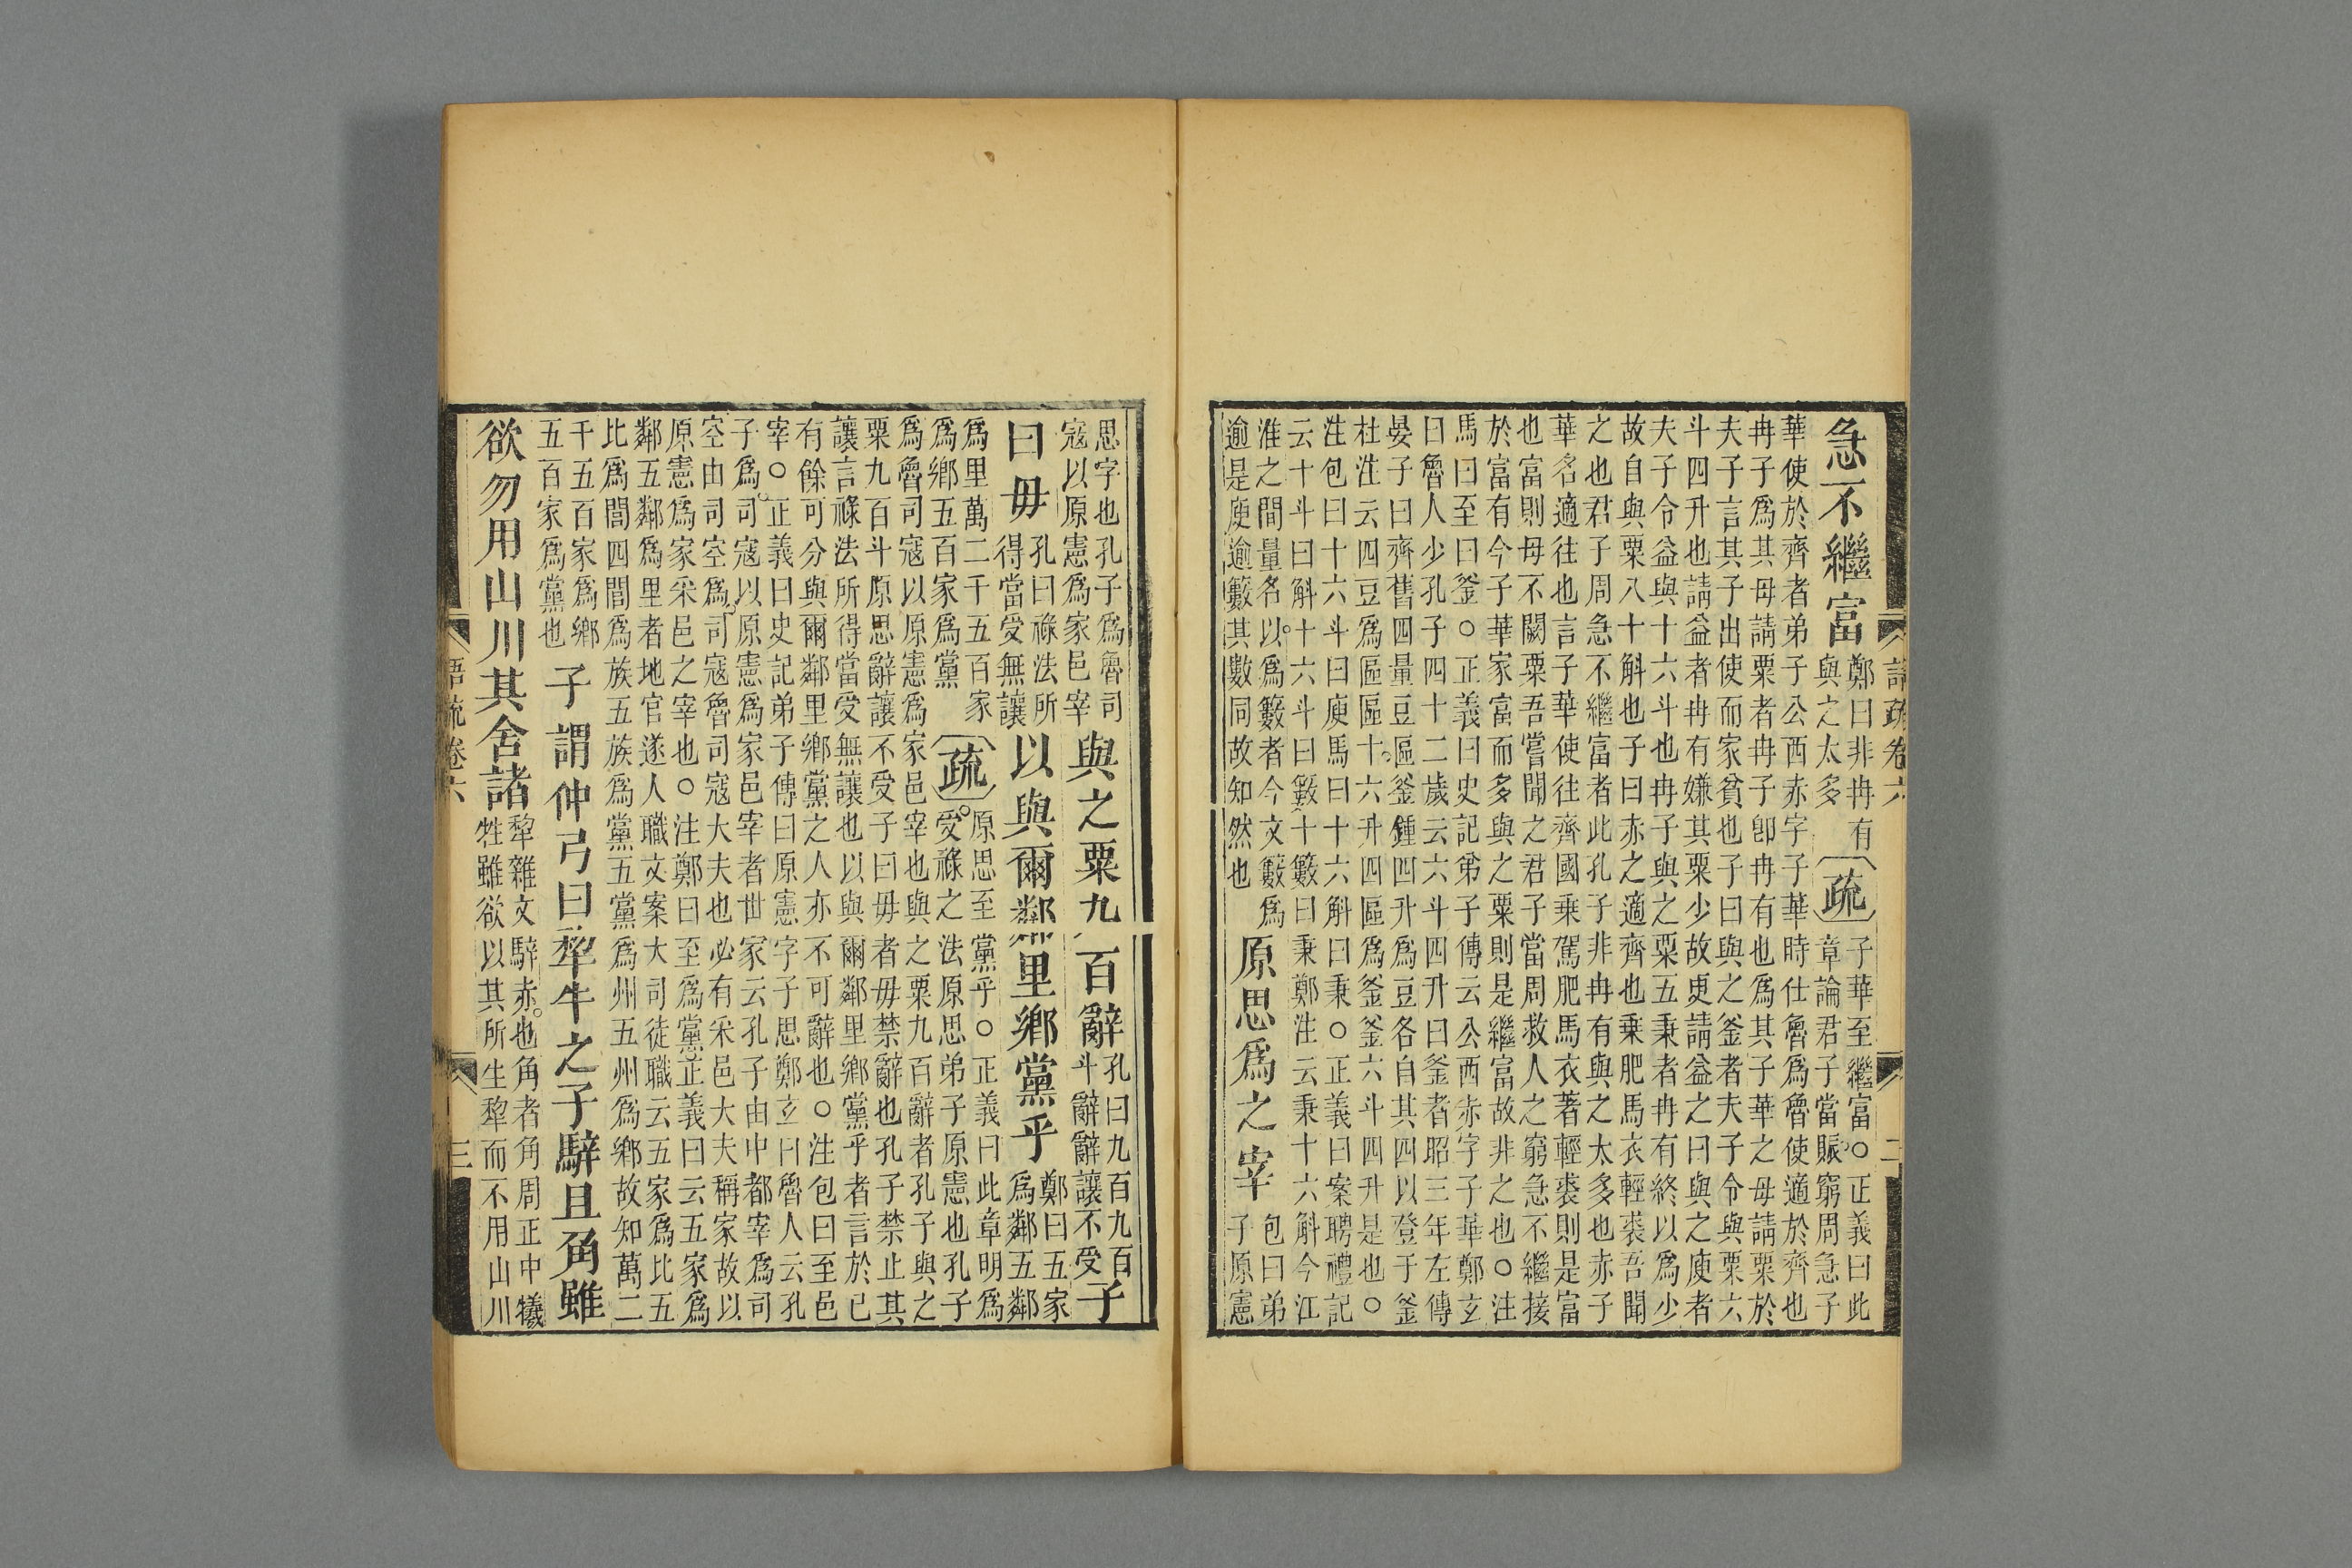 急不繼富
鄭曰非冉有
與之太多
疏
子華至繼富○正義曰此
章論君子當賑窮周急子
華使於齊者弟子公西赤字子華時仕魯爲魯使適於齊也
冉子爲其母請粟者冉子卽冉有也爲其子華之母請粟於
夫子言其子出使而家貧也子曰與之釜者夫子令與粟六
斗四升也請益者冉有嫌其粟少故更請益之曰與之庾者
夫子令益與十六斗也冉子與之粟五秉者冉有終以爲少
故自與粟八十斛也子曰赤之適齊也乘肥馬衣輕裘吾聞
之也君子周急不繼富者此孔子非冉有與之太多也赤子
華名適往也言子華使往齊國乘駕肥馬衣著輕裘則是富
也富則母不闕粟吾嘗聞之君子當周救人之窮急不繼接
於富有今子華家富而多與之粟則是繼富故非之也○注
馬曰至曰釜○正義曰史記弟子傳云公西赤字子華鄭玄
曰魯人少孔子四十二歲云六斗四升曰釜者昭三年左傳
晏子曰齊舊四量豆區釜鍾四升爲豆各自其四以登于釜
杜注云四豆爲區區十六升四區爲釜釜六斗四升是也○
注包曰十六斗曰庾馬曰十六斛曰秉○正義曰案聘禮記
云十斗曰斛十六斗曰籔十籔曰秉鄭注云秉十六斛今江
淮之間量名以爲籔者今文籔爲
逾是庾逾籔其數同故知然也
原思爲之宰
包曰弟
子原憲
語疏卷六
二
思字也孔子爲魯司
寇以原憲爲家邑宰
與之粟九百辭
孔曰九百九百
斗辭辭讓不受
子
曰毋
孔曰祿法所
得當受無讓
以與爾鄰里鄉黨乎
鄭曰五家
爲鄰五鄰
爲里萬二千五百家
爲鄉五百家爲黨
疏
原思至黨乎○正義曰此章明爲
受祿之法原思弟子原憲也孔子
爲魯司寇以原憲爲家邑宰也與之粟九百辭者孔子與之
粟九百斗原思辭讓不受子曰毋者毋禁辭也孔子禁止其
讓言祿法所得當受無讓也以與爾鄰里鄉黨乎者言於己
有餘可分與爾鄰里鄉黨之人亦不可辭也○注包曰至邑
宰○正義曰史記弟子傳曰原憲字子思鄭玄曰魯人云孔
子爲司寇以原憲爲家邑宰者世家云孔子由中都宰爲司
空由司空爲司寇魯司寇大夫也必有采邑大夫稱家故以
原憲爲家采邑之宰也○注鄭曰至爲黨正義曰云五家爲
鄰五鄰爲里者地官遂人職文案大司徒職云五家爲比五
比爲閭四閭爲族五族爲黨五黨爲州五州爲鄉故知萬二
千五百家爲鄉
五百家爲黨也
子謂仲弓曰犂牛之子騂且角雖
欲勿用山川其舍諸
犂雜文騂赤也角者角周正中犧
牲雖欲以其所生犂而不用山川
語疏卷六
三